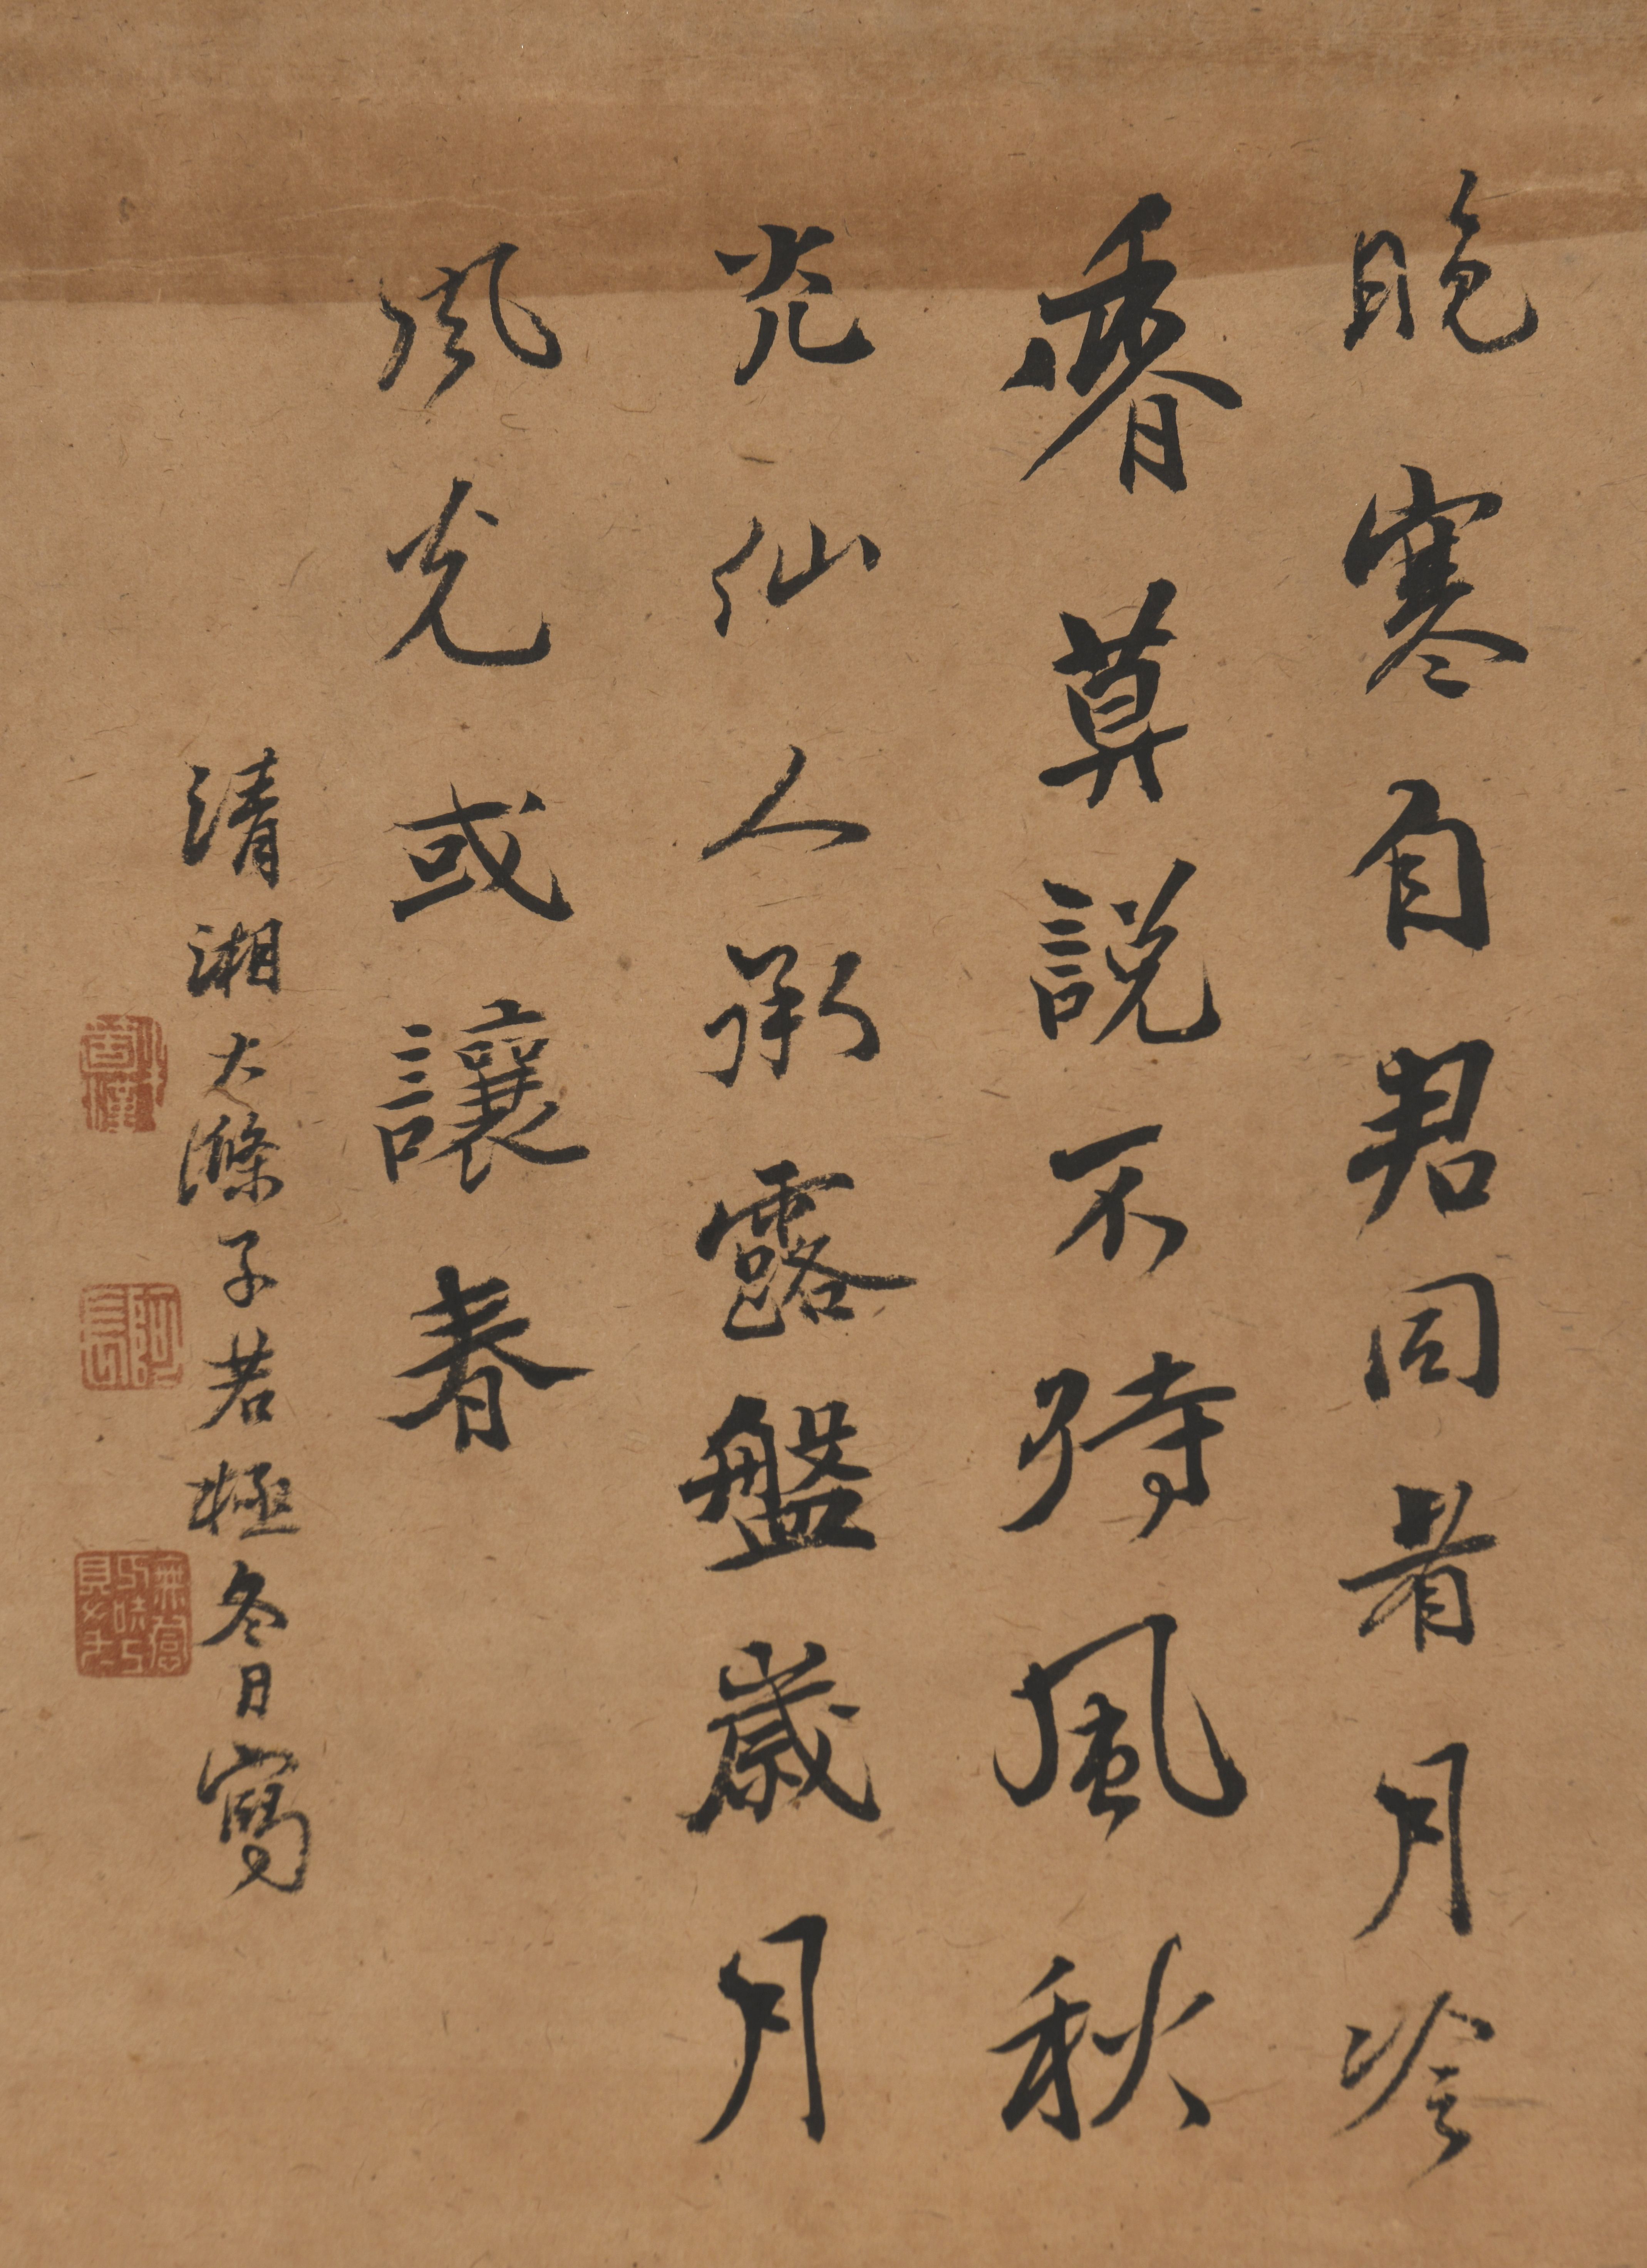 晚寒自君同看月冷
香莫說不待風秋
光仙人承露盤歲月
風光或讓春
清湘大滌子若極冬日寫